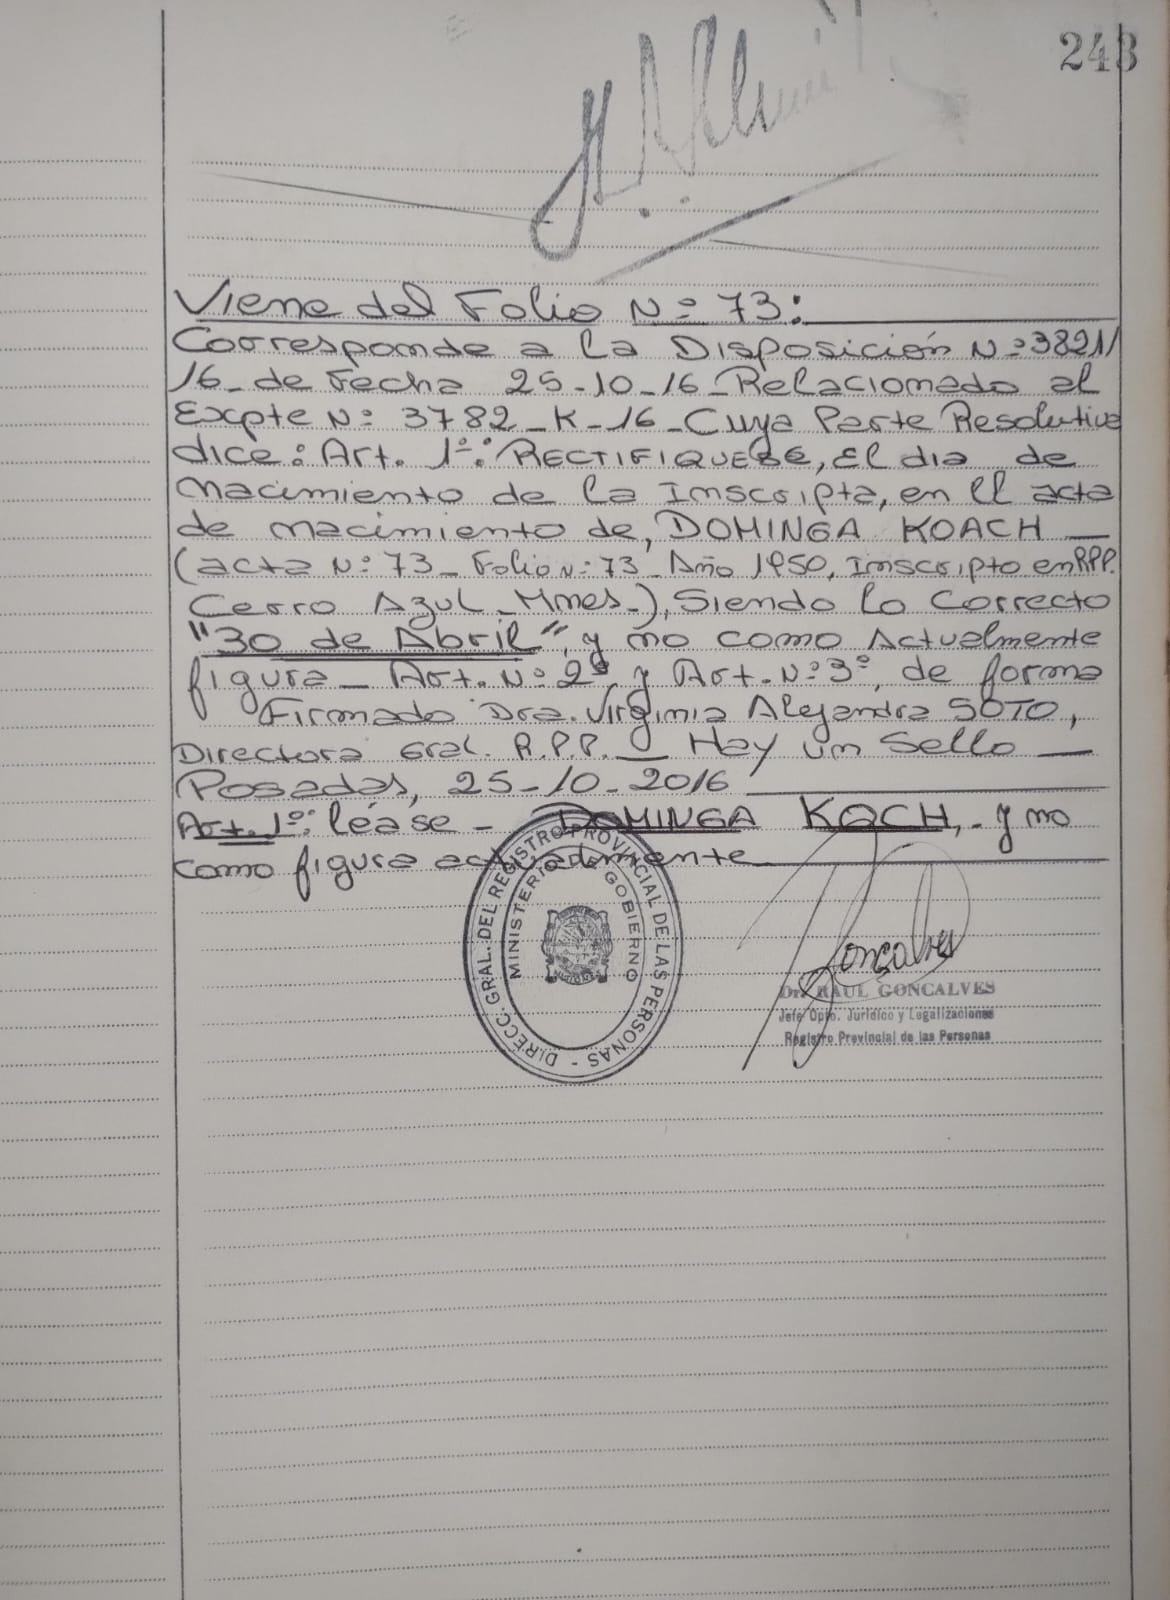 243
Viene del Folio N=° 73:
Corresponde a la Disposición N=° 3821/
16_ de Fecha 25-10-16_ Relacionado al
Expte N=° 3782_K-16_ Cuya Parte Resolutiva
dice: Art. 1°: RECTIFIQUESE, El dia de
nacimiento de la Inscripta, en el acta
de nacimiento de, DOMINGA KOACH —
(acta N=° 73_ Folio N=° 73_ Año 1950, Inscripto en RPP.
Cerro Azul_Mnes_), Siendo lo correcto
"30 de Abril", y no como Actualmente
figura_ Art. N=° 2° y Art. N=° 3°, de forma
Firmado Dra. Virginia Alejandra SOTO,
Directora Gral. R.P.P. — Hay un Sello —
Posadas, 25-10-2016
Art. 1°: léase - DOMINGA KOCH, - y no
como figura actualmente
DIRECC. GRAL. DEL REGISTRO PROVINCIAL DE LAS PERSONAS -
MINISTERIO DE GOBIERNO
Gonçalves
Dr. RAUL GONCALVES
Jefe Dpto. Jurídico y Legalizaciones
Registro Provincial de las Personas